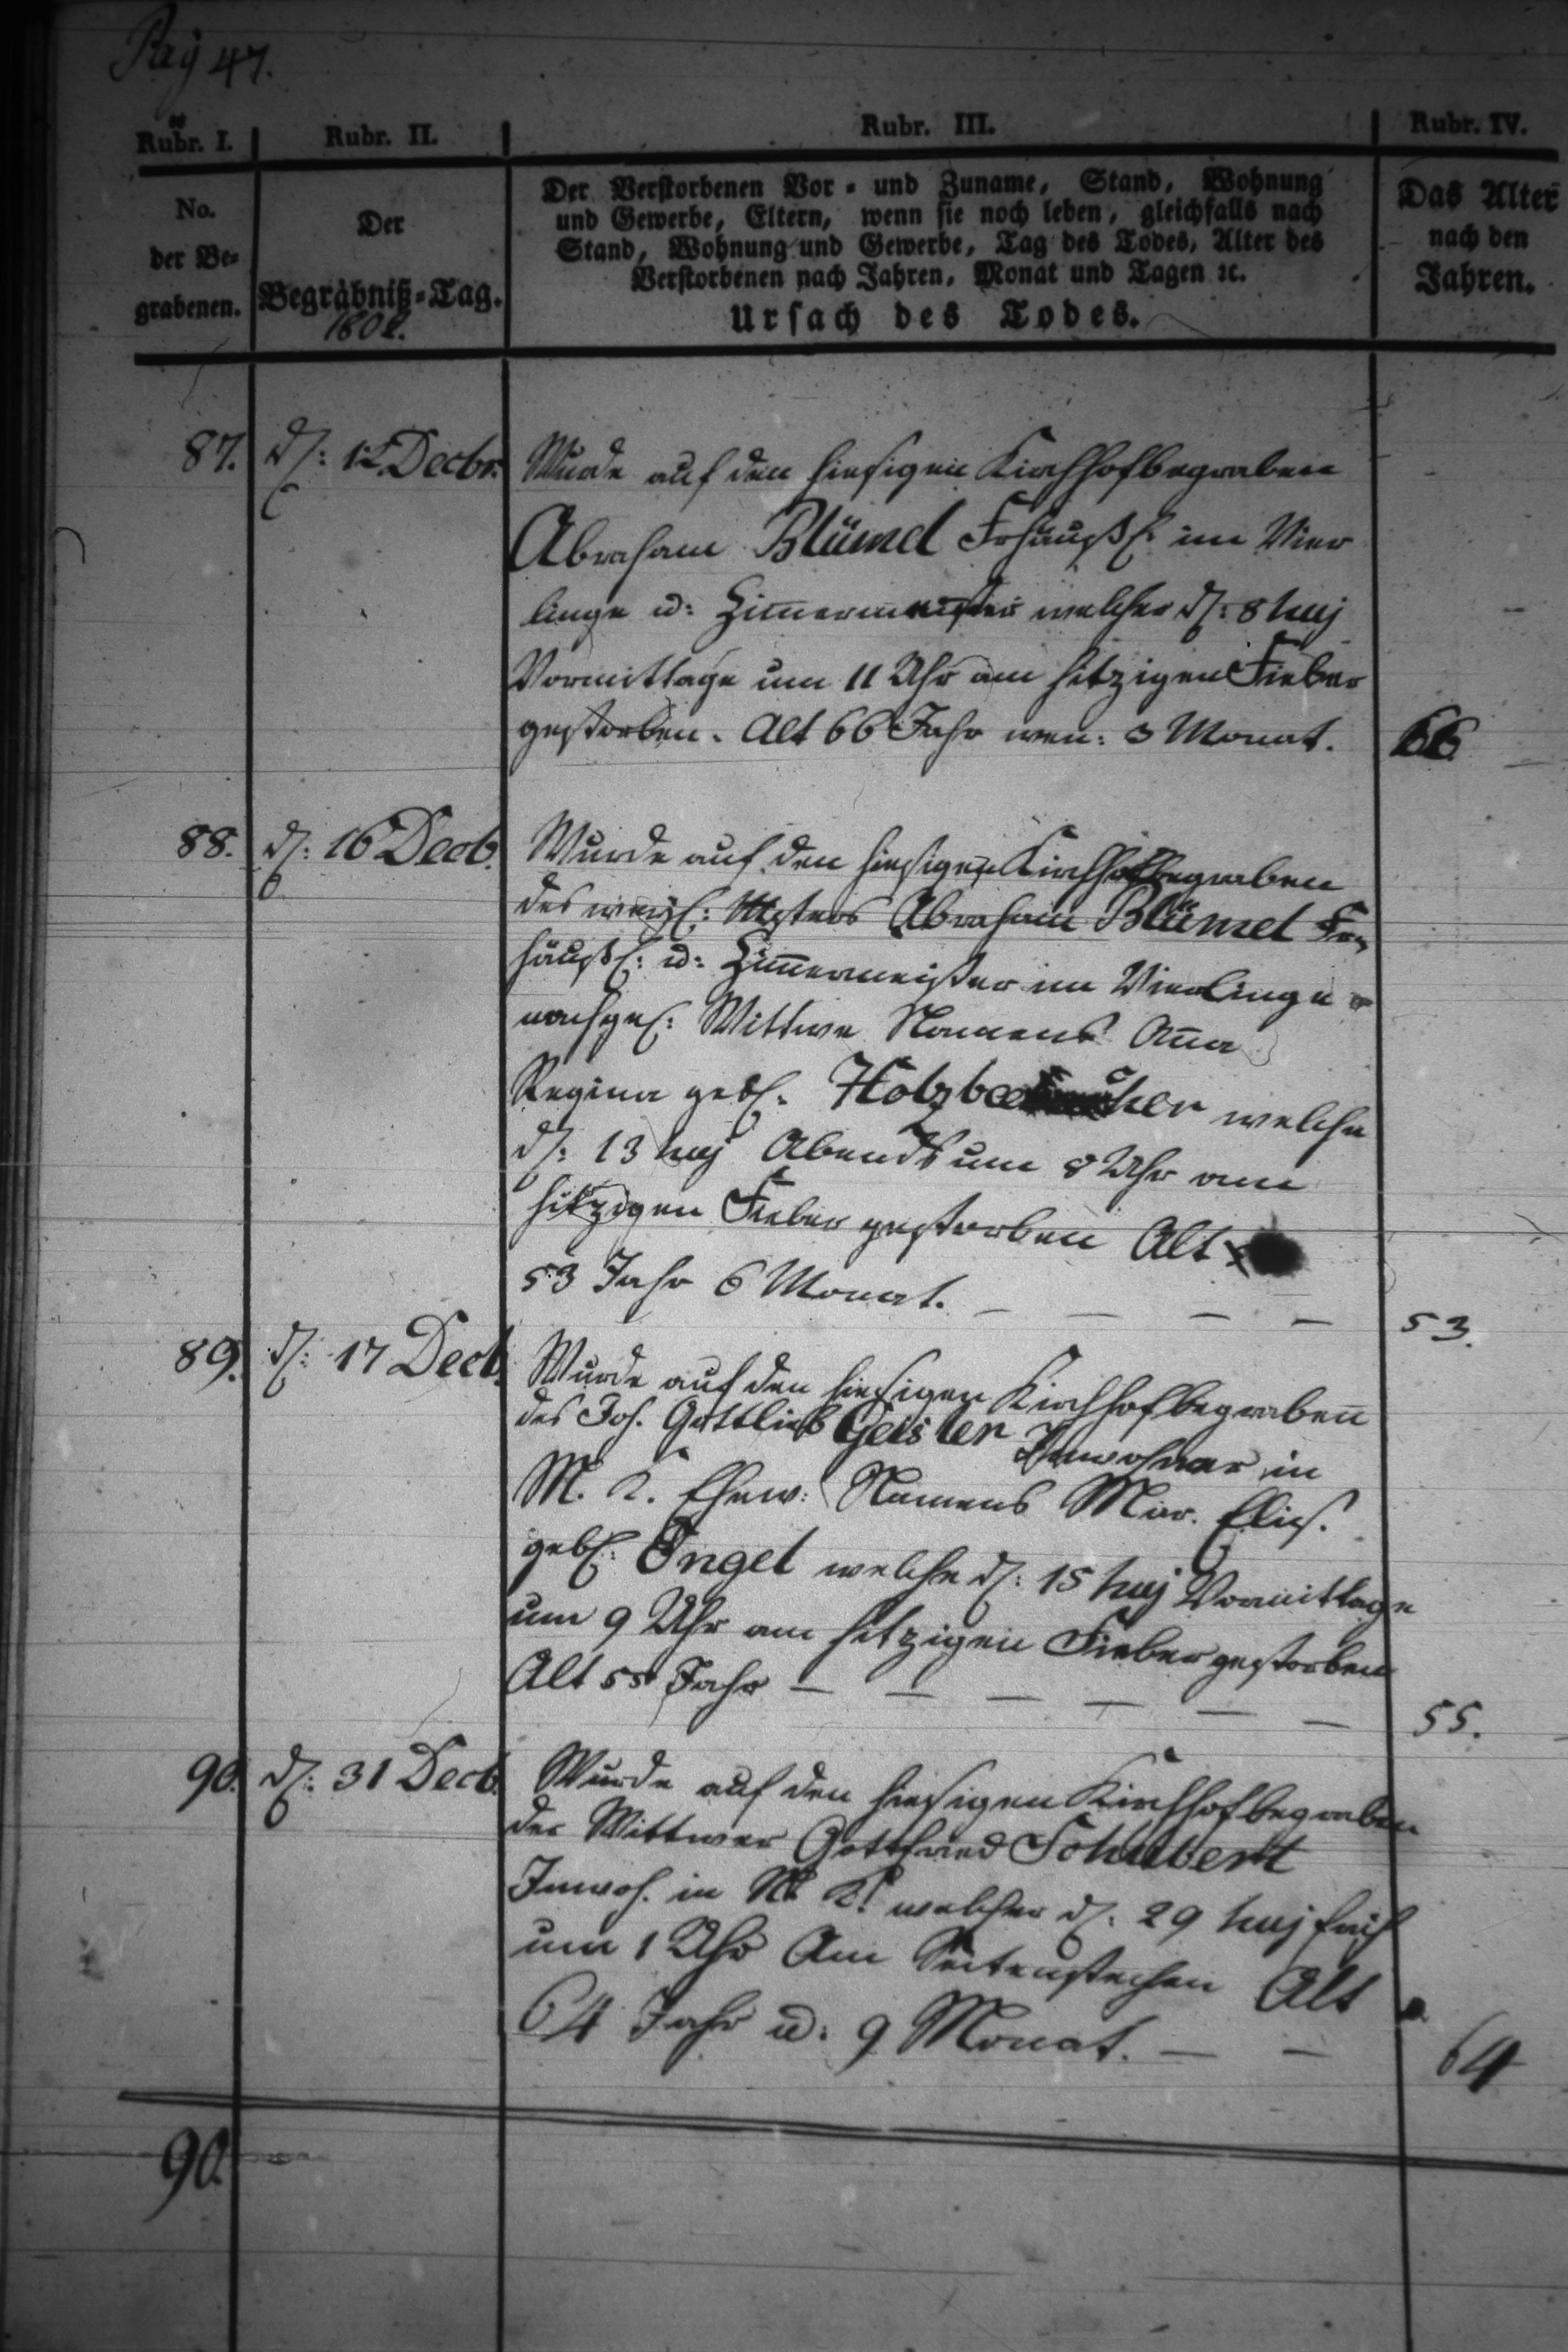 Pag 47.
Rubr. I. Rubr. II. Rubr. III. Rubr. IV.
No. der Be= grabenen.
Der Begräbniß=Tag.
1802.
Der Verstorbenen Vor= und Zuname, Stand, Wohnung
und Gewerbe, Eltern, wenn sie noch leben, gleichfalls nach
Stand, Wohnung und Gewerbe, Tag des Todes, Alter des
Verstorbenen nach Jahren, Monat und Tagen ꝛc.
Ursach des Todes.
Das Alter
nach den
Jahren.
87. d: 12 Decbr. Wurde auf den hiesigen Kirchhof begraben
Abraham Blümel Frhäußl. im Vier
linge u: Zim̄ermeister welcher d: 8 huj
Vormittage um 11 Uhr am hitzigen Fieber
gestorben. Alt 66 Jahr wen: 3 Monat. 66
88. d: 16 Decb. Wurde auf den hiesigen Kirchhof begraben
des weyl: Msters Abraham Blümel Fr=
häußl: u: Zim̄ermeister im Vierlinge
nachgel: Wittwe Namens An̄a
Regina geb. welche
d: 13 huj Abends um 8 Uhr am
hitzigen Fieber gestorben Alt
53 Jahr 6 Monat. — — — — 53.
89. d: 17 Decb. Wurde auf den hiesigen Kirchhof begraben̄
des Joh. Gottlieb Geisler Inwohner in
M. K. Ehew: Namens Mar. Elis.
geb: Engel welche d: 15 huj Vormittage
um 9 Uhr am hitzigen Fieber gestorben
Alt 55 Jahr — — — — — — 55.
90. d: 31 Decb. Wurde auf den hiesigen Kirchhof begraben
der Wittwer Gottfried Schubert
Inwoh. in K. welcher d: 29 huj früh
um 1 Uhr Am Seitenstechen Alt
64 Jahr u: 9 Monat. — — 64
90.